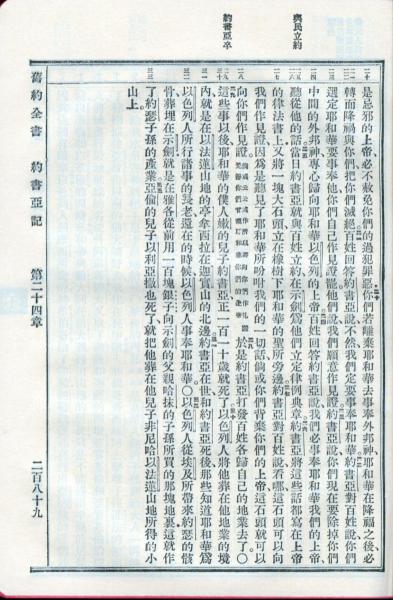 與民立約
約書亞卒
是忌邪的上帝必不赦免你們的過犯罪惡你們若離棄耶和華去事奉外邦神耶和華在降福之後必
轉而降禍與你們把你們滅絕百姓回答約書亞說不然我們定要事奉耶和華約書亞對百姓說你們
選定耶和華要事奉他你們自己作見證罷他們說我們願意作見證約書亞說你們現在要除掉你們
中間的外邦神專心歸向耶和華以色列的上帝百姓回答約書亞說我們必事奉耶和華我們的上帝
聽從他的話當日約書亞就與百姓立約在示劍爲他們立定律例典章約書亞將這些話都寫在上帝
的律法書上又將一塊大石頭立在橡樹下耶和華的聖所旁邊約書亞對百姓說看哪這石頭可以向
我們作見證因爲是聽見了耶和華所吩咐我們的一切話倘或你們背棄你們的上帝這石頭就可以
向你們作見證於是約書亞打發百姓各歸自己的地業去了○
這些事以後耶和華的僕人嫩的兒子約書亞正一百一十歲就死了以色列人將他葬在他地業的境
內就是在以法蓮山地的亭拿西拉在迦實山的北邊約書亞在世和約書亞死後那些知道耶和華爲
以色列人所行諸事的長老還在的時候以色列人事奉耶和華○以色列人從埃及所帶來約瑟的骸
骨葬埋在示劍就是在雅各從前用一百塊銀子向示劍的父親哈抹的子孫所買的那塊地裏這就作
了約瑟子孫的產業亞倫的兒子以利亞撒也死了就把他葬在他兒子非尼哈以法蓮山地所得的小
山上
舊約全書 約書亞記 第二十四章 二百八十九